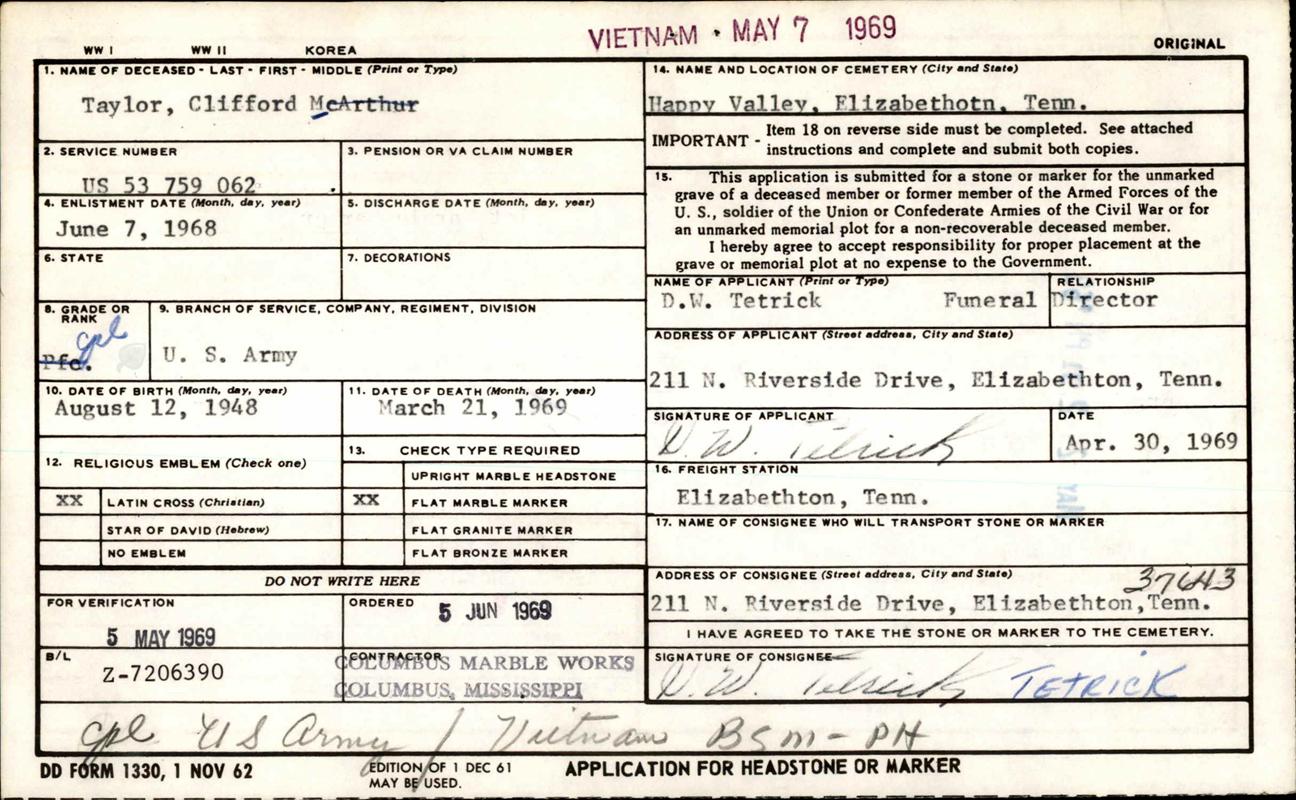 VIETNAM · MAY 7 1969
WW I WW II KOREA ORIGINAL
1. NAME OF DECEASED - LAST - FIRST - MIDDLE (Print or Type)
Taylor, Clifford McArthur
2. SERVICE NUMBER
US 53 759 062
3. PENSION OR VA CLAIM NUMBER
4. ENLISTMENT DATE (Month, day, year)
June 7, 1968
5. DISCHARGE DATE (Month, day, year)
6. STATE
7. DECORATIONS
8. GRADE OR RANK
Cpl
Pfc.
9. BRANCH OF SERVICE, COMPANY, REGIMENT, DIVISION
U. S. Army
10. DATE OF BIRTH (Month, day, year)
August 12, 1948
11. DATE OF DEATH (Month, day, year)
March 21, 1969
12. RELIGIOUS EMBLEM (Check one)
XX LATIN CROSS (Christian)
STAR OF DAVID (Hebrew)
NO EMBLEM
13. CHECK TYPE REQUIRED
UPRIGHT MARBLE HEADSTONE
XX FLAT MARBLE MARKER
FLAT GRANITE MARKER
FLAT BRONZE MARKER
DO NOT WRITE HERE
FOR VERIFICATION
5 MAY 1969
ORDERED
5 JUN 1969
B/L
Z-7206390
CONTRACTOR
COLUMBUS MARBLE WORKS
COLUMBUS, MISSISSIPPI
14. NAME AND LOCATION OF CEMETERY (City and State)
Happy Valley, Elizabethotn, Tenn.
IMPORTANT - Item 18 on reverse side must be completed. See attached
instructions and complete and submit both copies.
15. This application is submitted for a stone or marker for the unmarked
grave of a deceased member or former member of the Armed Forces of the
U. S., soldier of the Union or Confederate Armies of the Civil War or for
an unmarked memorial plot for a non-recoverable deceased member.
I hereby agree to accept responsibility for proper placement at the
grave or memorial plot at no expense to the Government.
NAME OF APPLICANT (Print or Type) RELATIONSHIP
D.W. Tetrick Funeral Director
ADDRESS OF APPLICANT (Street address, City and State)
211 N. Riverside Drive, Elizabethton, Tenn.
SIGNATURE OF APPLICANT
D. W. Tetrick
DATE
Apr. 30, 1969
16. FREIGHT STATION
Elizabethton, Tenn.
17. NAME OF CONSIGNEE WHO WILL TRANSPORT STONE OR MARKER
ADDRESS OF CONSIGNEE (Street address, City and State) 37643
211 N. Riverside Drive, Elizabethton,Tenn.
I HAVE AGREED TO TAKE THE STONE OR MARKER TO THE CEMETERY.
SIGNATURE OF CONSIGNEE
D. W. Tetrick TETRICK
Cpl US Army / Vietnam BSM - PH
DD FORM 1330, 1 NOV 62
EDITION OF 1 DEC 61
MAY BE USED.
APPLICATION FOR HEADSTONE OR MARKER